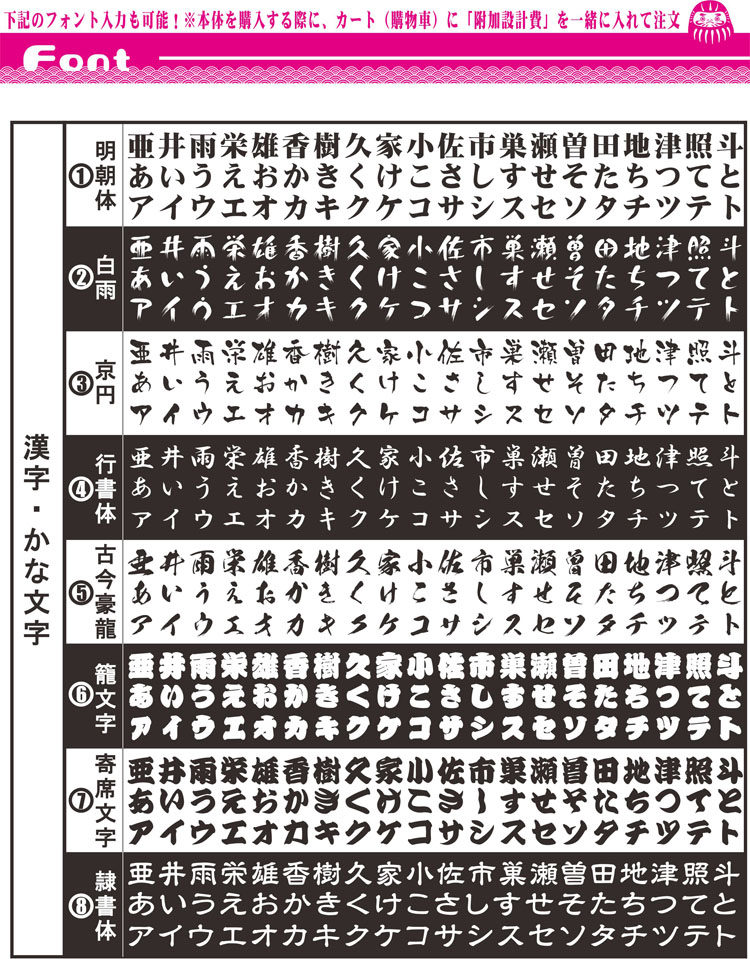 下記のフォント入力も可能!※本体を購入する際に、カート(購物車)に「附加設計費」を一緒に入れて注文
Font
漢字・かな文字
①明朝体
亜井雨栄雄香樹久家小佐市巣瀬曽田地津照斗
あいうえおかきくけこさしすせそたちつてと
アイウエオカキクケコサシスセソタチツテト
②白雨
亜井雨栄雄香樹久家小佐市巣瀬曽田地津照斗
あいうえおかきくけこさしすせそたちつてと
アイウエオカキクケコサシスセソタチツテト
③京円
亜井雨栄雄香樹久家小佐市巣瀬曽田地津照斗
あいうえおかきくけこさしすせそたちつてと
アイウエオカキクケコサシスセソタチツテト
④行書体
亜井雨栄雄香樹久家小佐市巣瀬曽田地津照斗
あいうえおかきくけこさしすせそたちつてと
アイウエオカキクケコサシスセソタチツテト
⑤古今豪龍
亜井雨栄雄香樹久家小佐市巣瀬曽田地津照斗
あいうえおかきくけこさしすせそたちつてと
アイウエオカキクケコサシスセソタチツテト
⑥籠文字
亜井雨栄雄香樹久家小佐市巣瀬曽田地津照斗
あいうえおかきくけこさしすせそたちつてと
アイウエオカキクケコサシスセソタチツテト
⑦寄席文字
亜井雨栄雄香樹久家小佐市巣瀬曽田地津照斗
あいうえおかきくけこさしすせそたちつてと
アイウエオカキクケコサシスセソタチツテト
⑧隷書体
亜井雨栄雄香樹久家小佐市巣瀬曽田地津照斗
あいうえおかきくけこさしすせそたちつてと
アイウエオカキクケコサシスセソタチツテト